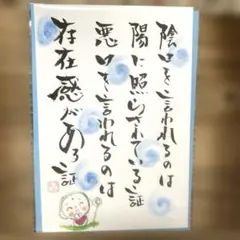 陰口を言われるのは
陽に照らされている証
悪口を言われるのは
存在感がある証